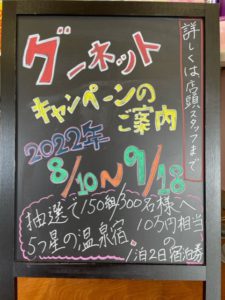 グーネット
キャンペーンの
ご案内
2022年
8/10～9/18
抽選で150組300名様へ
5つ星の温泉宿 10万円相当の
1泊2日宿泊券
詳しくは店頭スタッフまで